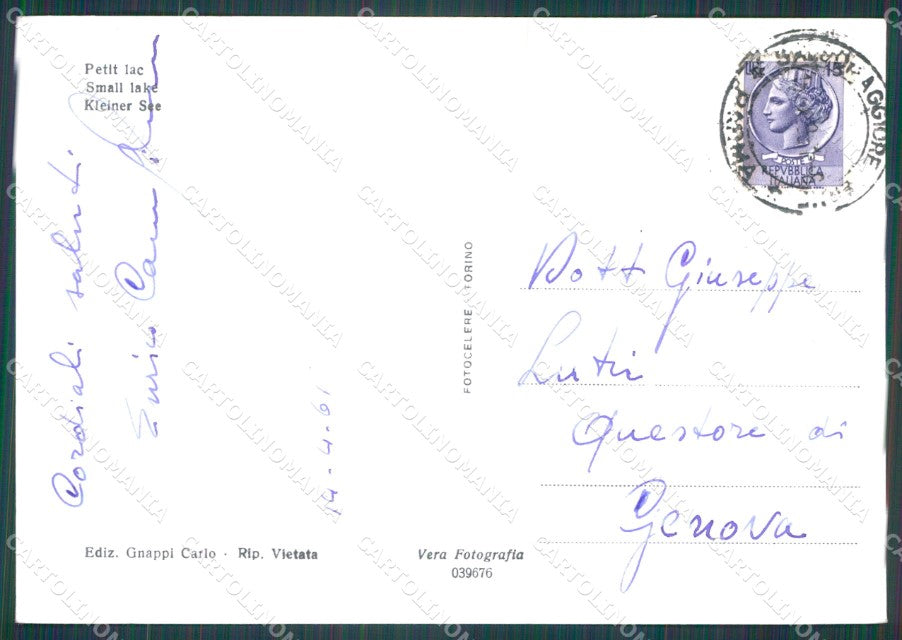 Petit lac
Small lake
Kleiner See
Cordiali saluti
Enrico
14-4-61
FOTOCELERE TORINO
LIRE 15
POSTE
REPVBBLICA
ITALIANA
PARMA
MAGGIORE
Dott Giuseppe
Lutri
Questore di
Genova
Ediz. Gnappi Carlo - Rip. Vietata
Vera Fotografia
039676
CARTOLINOMANIA